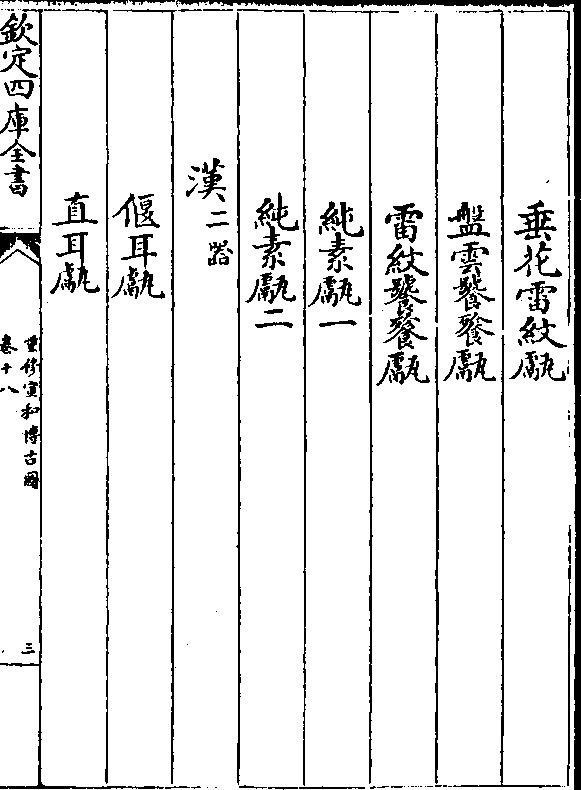 垂花雷紋甗
盤雲饕餮甗
雷紋饕餮甗
純素甗一
純素甗二
漢二器
偃耳甗
直耳甗
欽定四庫全書
重修宣和博古圖
卷十八
三